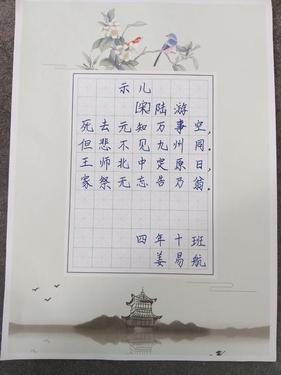 示儿
[宋]陆游
死去元知万事空，
但悲不见九州同。
王师北定中原日，
家祭无忘告乃翁。
四年十班
姜易航